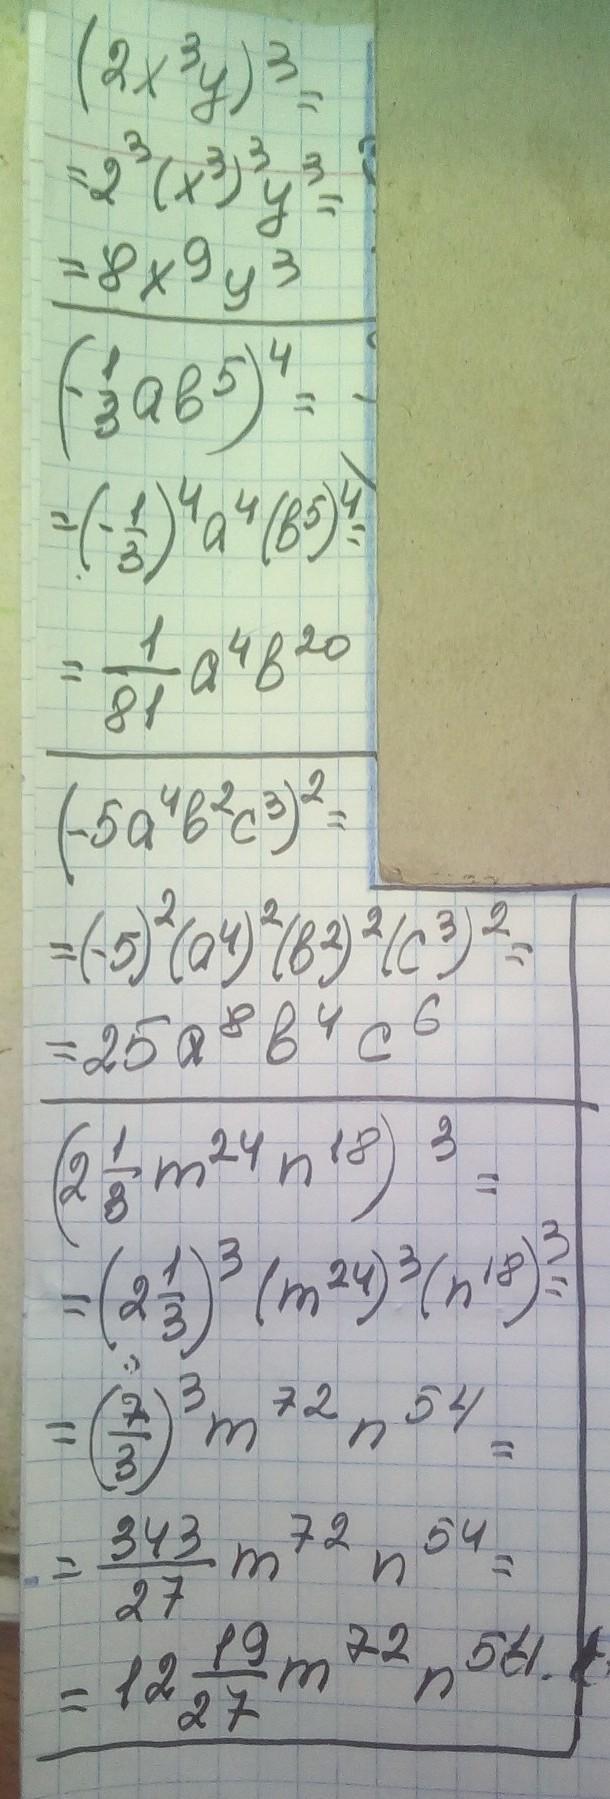 (2x³y)³=
=2³(x³)³y³=
=8x⁹y³
(-1/3ab⁵)⁴=
=(-1/3)⁴a⁴(b⁵)⁴=
=1/81a⁴b²⁰
(-5a⁴b²c³)²=
=(-5)²(a⁴)²(b²)²(c³)²=
=25a⁸b⁴c⁶
(2 1/3m²⁴n¹⁸)³=
=(2 1/3)³(m²⁴)³(n¹⁸)³=
=(7/3)³m⁷²n⁵⁴=
=343/27m⁷²n⁵⁴=
=12 19/27m⁷²n⁵⁴.